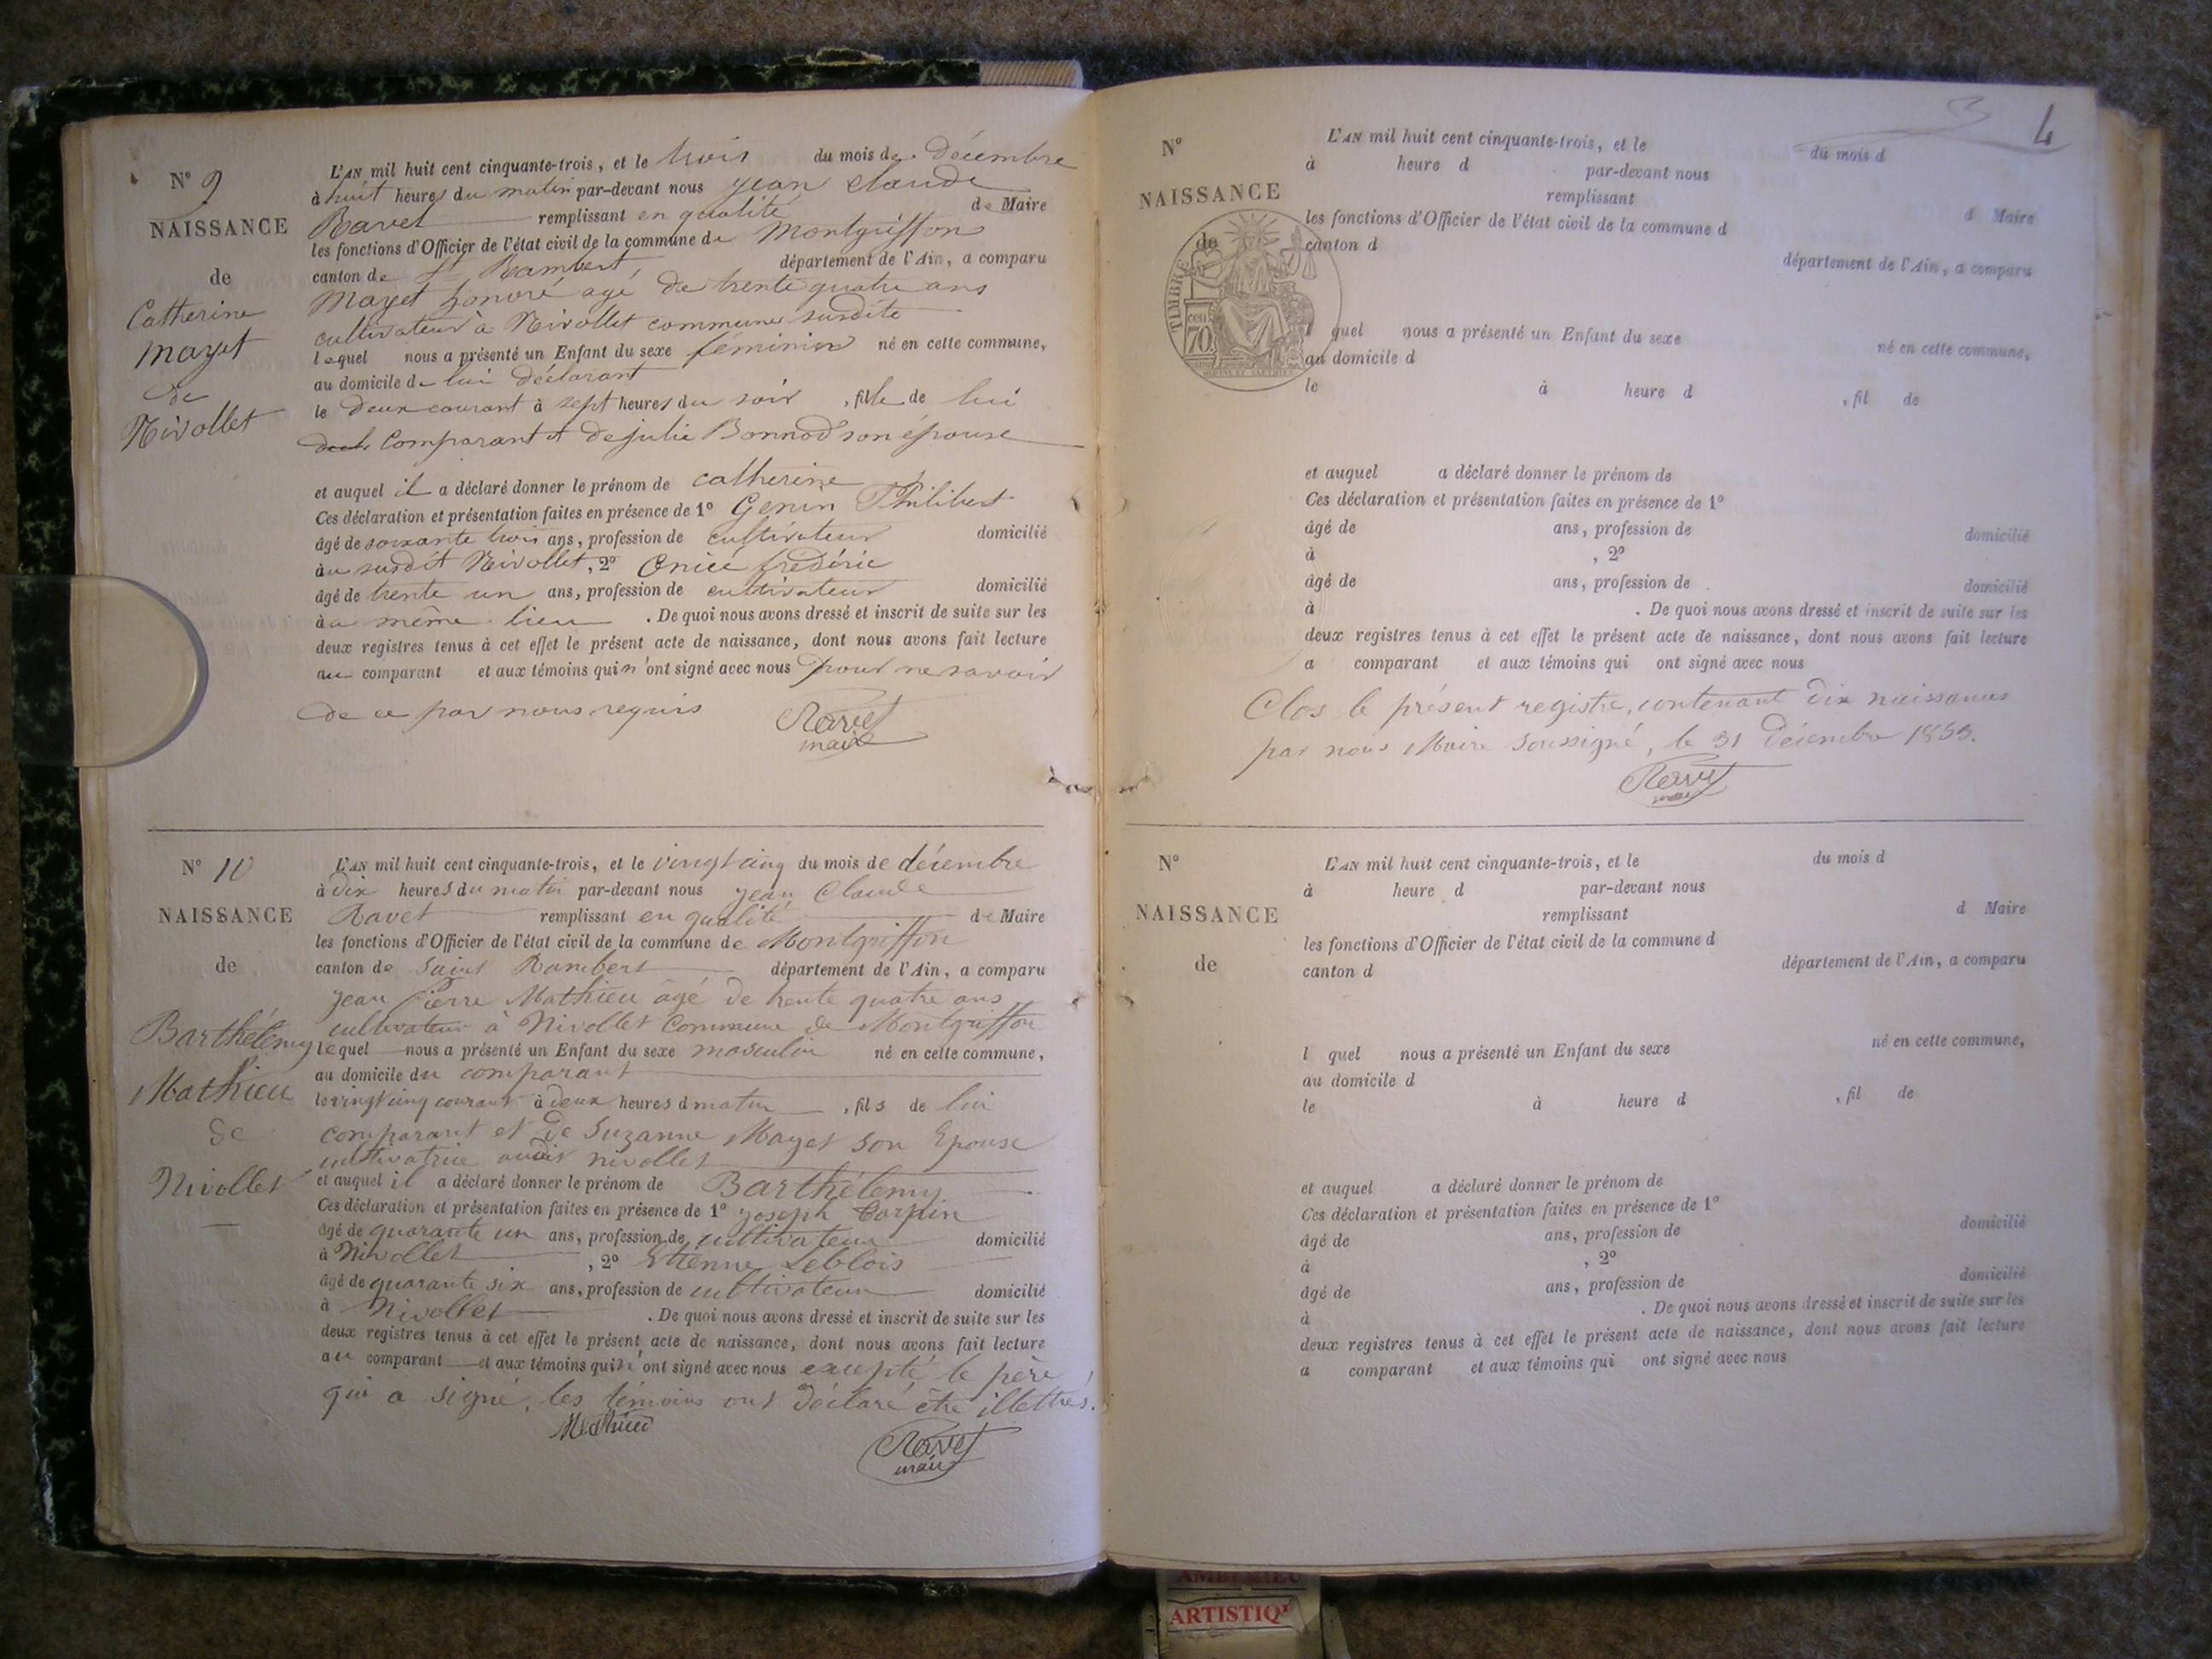 N° 9
NAISSANCE
de
Catherine
mayet
de
Nivollet
L'AN mil huit cent cinquante-trois, et le trois du mois de décembre
à huit heures du matin par-devant nous jean claude
Ravet remplissant en qualité de Maire
les fonctions d'Officier de l'état civil de la commune de montgriffon
canton de St Rambert département de l'Ain, a comparu
mayet honoré agé de trente quatre ans
cultivateur à Nivollet commune susdite
lequel nous a présenté un Enfant du sexe féminin né en cette commune,
au domicile de lui déclarant
le deux courant à sept heures du soir , fille de lui
comparant et de julie Bonnod son épouse
et auquel il a déclaré donner le prénom de catherine
Ces déclaration et présentation faites en présence de 1° Genin Philibert
âgé de soixante trois ans, profession de cultivateur domicilié
au susdit Nivollet, 2° frédéric
âgé de trente un ans, profession de cultivateur domicilié
à même lieu . De quoi nous avons dressé et inscrit de suite sur les
deux registres tenus à cet effet le présent acte de naissance, dont nous avons fait lecture
au comparant et aux témoins qui n'ont signé avec nous pour ne savoir
de ce par nous requis
Ravet
maire
N° 10
NAISSANCE
de
Barthélemy
Mathieu
de
Nivollet
L'AN mil huit cent cinquante-trois, et le vingt cinq du mois de décembre
à dix heures du matin par-devant nous jean Claude
Ravet remplissant en qualité de Maire
les fonctions d'Officier de l'état civil de la commune de Montgriffon
canton de Saint Rambert département de l'Ain, a comparu
jean Pierre Mathieu âgé de trente quatre ans
cultivateur à Nivollet Commune de Montgriffon
lequel nous a présenté un Enfant du sexe masculin né en cette commune,
au domicile du comparant
le vingt cinq courant à deux heures d matin , fils de lui
comparant et de Suzanne Mayet son Epouse
cultivatrice audit nivollet
et auquel il a déclaré donner le prénom de Barthélemy
Ces déclaration et présentation faites en présence de 1° joseph Corpin
âgé de quarante un ans, profession de cultivateur domicilié
à Nivollet , 2° Etienne Leblois
âgé de quarante six ans, profession de cultivateur domicilié
à Nivollet . De quoi nous avons dressé et inscrit de suite sur les
deux registres tenus à cet effet le présent acte de naissance, dont nous avons fait lecture
au comparant et aux témoins qui n'ont signé avec nous excepté le père
qui a signé, les témoins ont déclaré être illettrés.
Mathieu
Ravet
maire
4
N°
NAISSANCE
de
TIMBRE
70 cen
L'AN mil huit cent cinquante-trois, et le du mois d
à heure d par-devant nous
remplissant d Maire
les fonctions d'Officier de l'état civil de la commune d
canton d département de l'Ain, a comparu
l quel nous a présenté un Enfant du sexe né en cette commune,
au domicile d
le à heure d , fil de
et auquel a déclaré donner le prénom de
Ces déclaration et présentation faites en présence de 1°
âgé de ans, profession de domicilié
à , 2°
âgé de ans, profession de domicilié
à . De quoi nous avons dressé et inscrit de suite sur les
deux registres tenus à cet effet le présent acte de naissance, dont nous avons fait lecture
a comparant et aux témoins qui ont signé avec nous
Clos le présent registre, contenant dix naissances
par nous Maire soussigné, le 31 décembre 1853.
Ravet
maire
N°
NAISSANCE
de
L'AN mil huit cent cinquante-trois, et le du mois d
à heure d par-devant nous
remplissant d Maire
les fonctions d'Officier de l'état civil de la commune d
canton d département de l'Ain, a comparu
l quel nous a présenté un Enfant du sexe né en cette commune,
au domicile d
le à heure d , fil de
et auquel a déclaré donner le prénom de
Ces déclaration et présentation faites en présence de 1°
âgé de ans, profession de domicilié
à , 2°
âgé de ans, profession de domicilié
à . De quoi nous avons dressé et inscrit de suite sur les
deux registres tenus à cet effet le présent acte de naissance, dont nous avons fait lecture
a comparant et aux témoins qui ont signé avec nous
ARTISTIQ